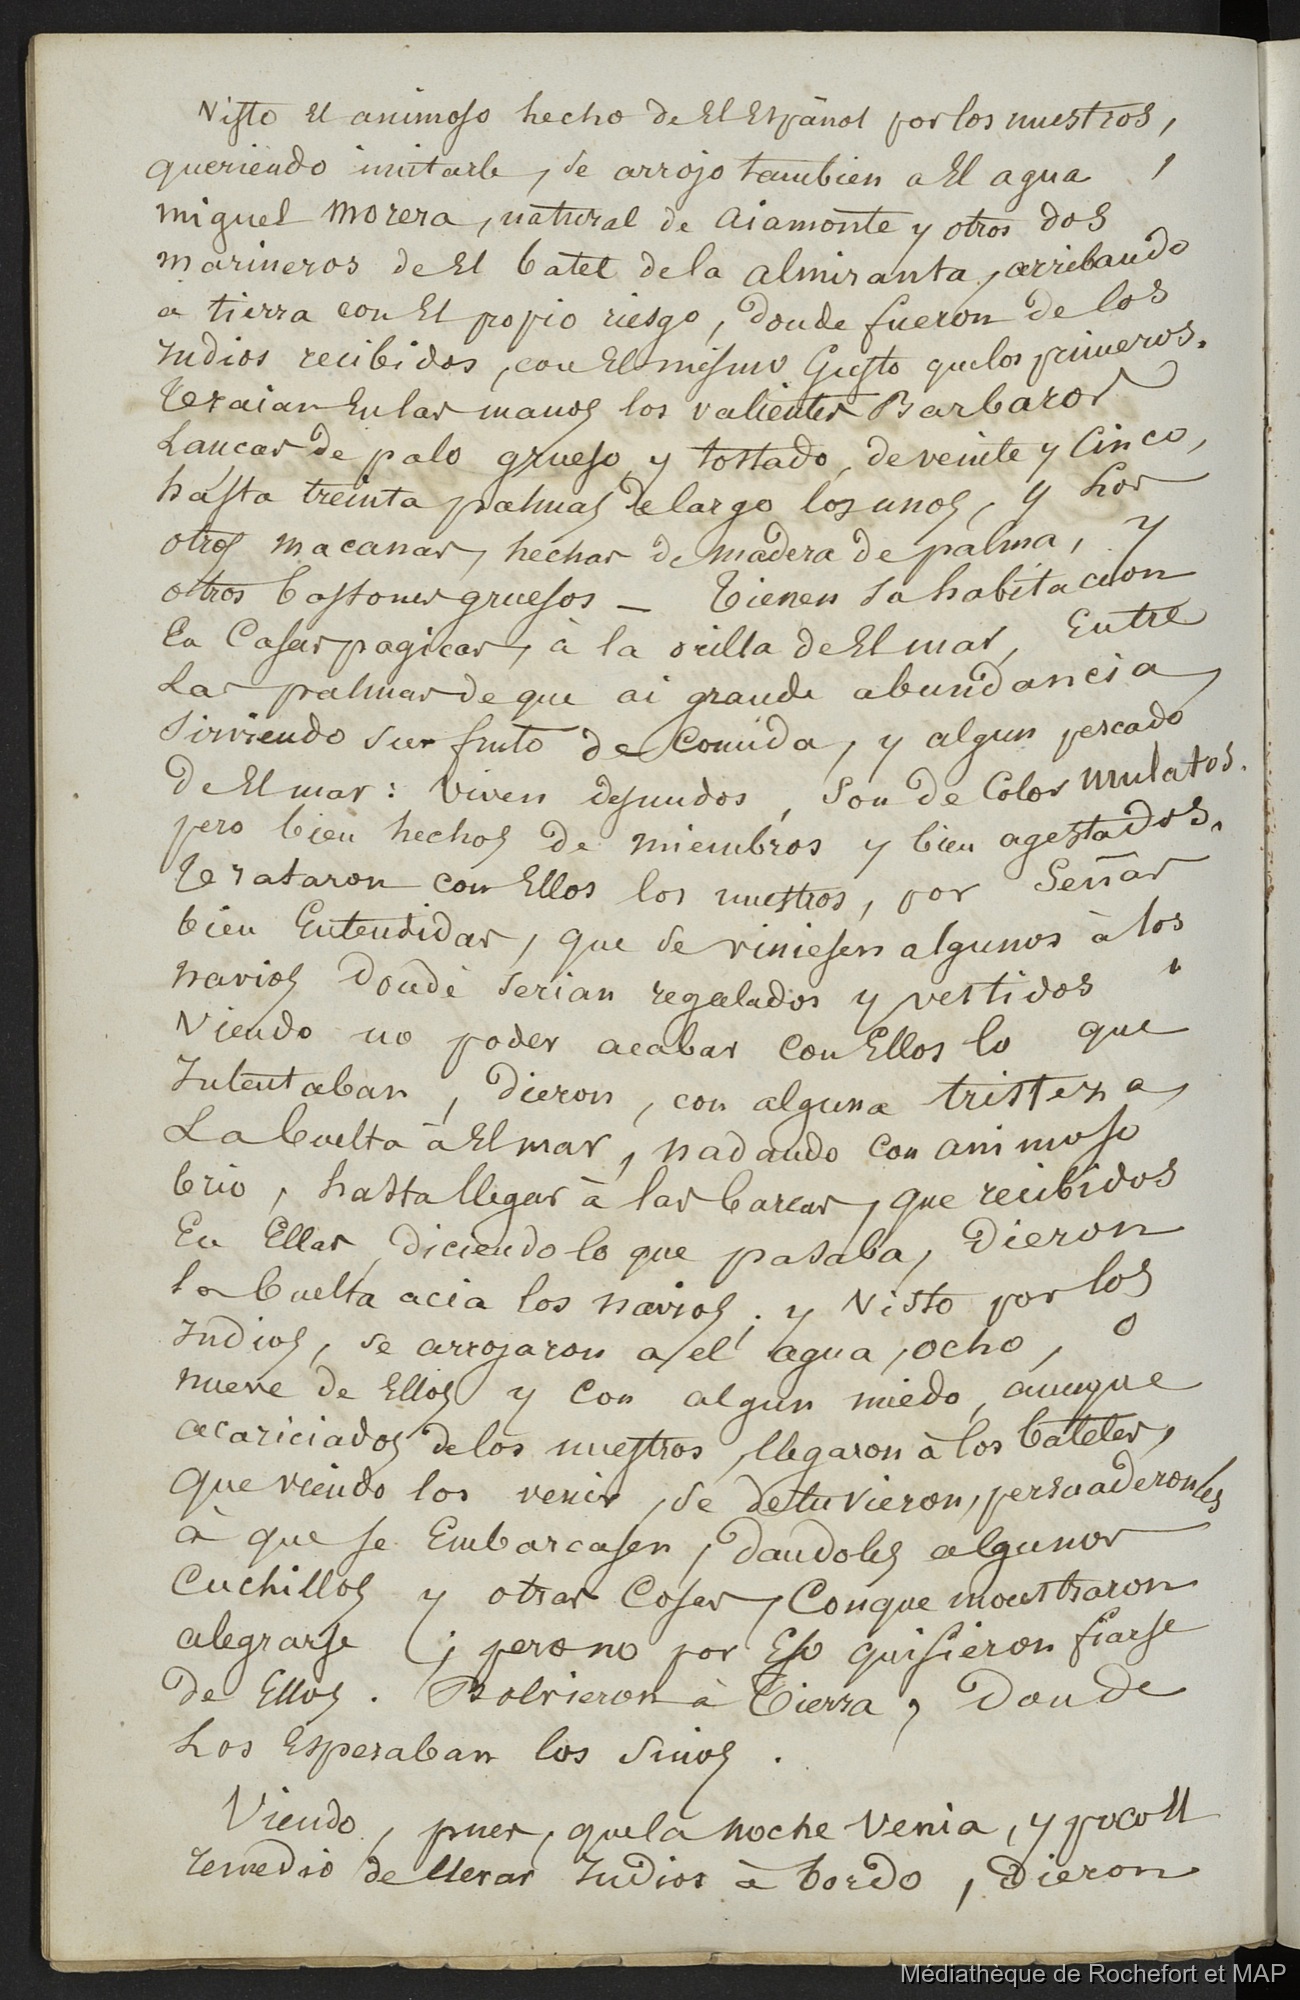 Visto El animoso hecho de El Español por los nuestros,
queriendo imitarle, se arrojo tambien a El agua,
miguel Morera, natural de Aiamonte y otros dos
marineros de El batel de la almiranta, arribando
à tierra con El popio riesgo, donde fueron de los
Indios recibidos, con El mismo Gusto que los primeros.
Traian En las manos los valientes Barbaros
Lancas de palo grueso, y tostado, de veinte y Cinco,
hasta treinta palmas de largo los unos, y Los
otros macanas, hechas de madera de palma, y
otros bastones gruesos — Tienen su habitacion
En Casas pagicas, à la orilla de El mar, Entre
Las palmas de que ai grande abundancia,
Sirviendo sus fruto de Comida, y algun pescado
de El mar: Viven desnudos, Son de Color mulatos.
pero bien hechos de miembros y bien agestados.
Trataron con Ellos los nuestros, por Señas
bien Entendidas, que se viniesen algunos à los
navios donde serian regalados y vestidos,
Viendo no poder acabar con Ellos lo que
Intentaban, dieron, con alguna tristeza,
La buelta à El mar, nadando con animoso
brio, hasta llegar à las barcas, que recibidos
En Ellas, diciendo lo que pasaba, dieron
la buelta acia los navios; y Visto por los
Indios, se arrojaron a el agua, ocho, o
nueve de Ellos y con algun miedo, aunque
acariciados de los nuestros, llegaron à los bateles,
que viendo los venir, se detuvieron, persuaderonles
à que se Embarcasen, dandoles algunos
Cuchillos y otras Cosas, Conque mostraron
alegrarse; pero no por Eso quisieron fiarse
de Ellos. Bolvieron à Tierra, donde
Los Esperaban los Suios.
Viendo, pues, que la noche Venia, y poco El
remedio de llevar Indios à bordo, dieron
Médiathèque de Rochefort et MAP